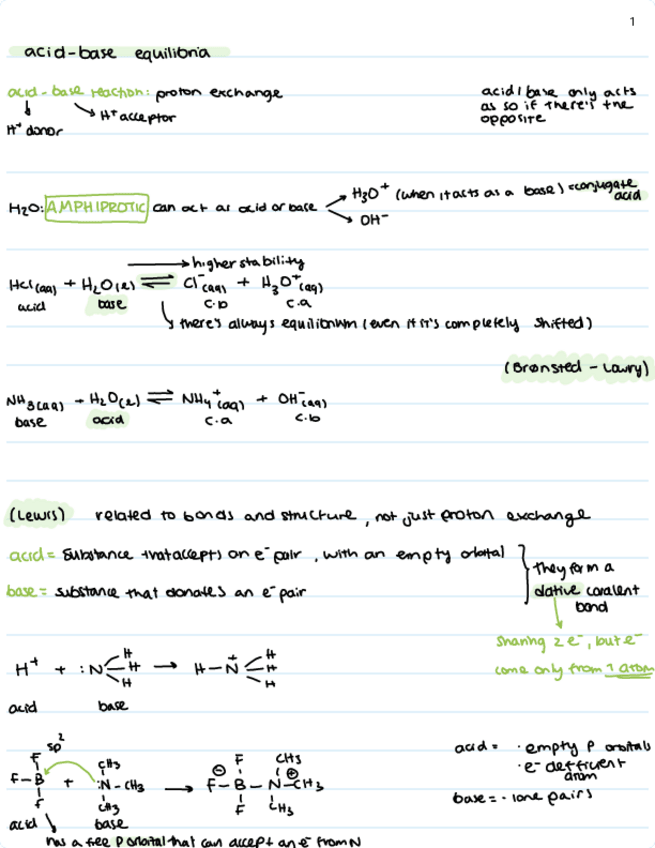 1
acid-base equilibria
acid-base reaction: proton exchange
H⁺ donor
H⁺ acceptor
acid/base only acts
as so if there's the
opposite
H₂O: AMPHIPROTIC can act as acid or base
H₃O⁺ (when it acts as a base) = conjugate
acid
OH⁻
→ higher stability
HCl(aq) + H₂O(l) ⇌ Cl⁻(aq) + H₃O⁺(aq)
acid base c.b c.a
↳ there's always equilibrium (even if it's completely shifted)
(Brønsted - Lowry)
NH₃(aq) + H₂O(l) ⇌ NH₄⁺(aq) + OH⁻(aq)
base acid c.a c.b
(Lewis) related to bonds and structure, not just proton exchange
acid = substance that accepts on e⁻ pair, with an empty orbital
base = substance that donates an e⁻ pair
They form a
dative covalent
bond
sharing 2 e⁻, but e⁻
come only from 1 atom
H⁺ + :N H H H → H-N⁺ H H H
acid base
sp²
F CH₃ F CH₃
F-B + :N-CH₃ → F-B⊖-N⊕-CH₃
F CH₃ F CH₃
acid base
has a free p orbital that can accept an e⁻ from N
acid = · empty p orbitals
· e⁻ defficient
atom
base = · lone pairs